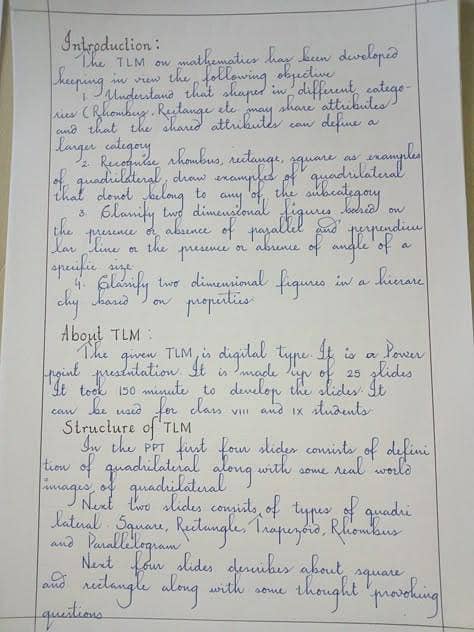 Introduction:
The TLM on mathematics has been developed
keeping in view the following objective
1. Understand that shapes in different catego-
ries (Rhombus, Rectange etc may share attributes
and that the shared attributes can define a
larger category
2. Recognise rhombus, rectange, square as examples
of quadrilateral, draw examples of quadrilateral
that donot belong to any of the subcategory
3. Classify two dimensional figures based on
the presence or absence of parallel and perpendicu
lar line or the presence or absence of angle of a
specific size
4. Classify two dimensional figures in a hierarc
chy based on properties
About TLM :
The given TLM is digital type. It is a Power
point presentation. It is made up of 25 slides
It took 150 minute to develop the slides. It
can be used for class VIII and IX students.
Structure of TLM
In the PPT first four slides consists of defini
tion of quadrilateral along with some real world
images of quadrilateral
Next two slides consists of types of quadri
lateral. Square, Rectangle, Trapezoid, Rhombus
and Parallelogram
Next four slides describes about square
and rectangle along with some thought provoking
questions